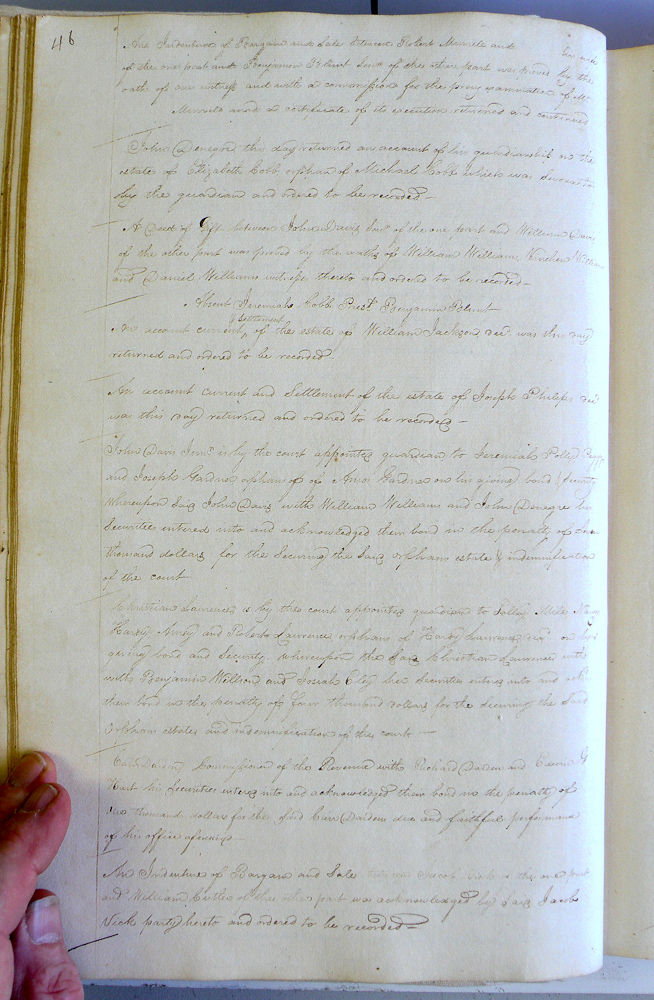 46
An Indenture of Bargain and Sale between Robert Murrele and
of the one part and Benjamin Blunt Senr of the other part was proved by the
oath of one witness and with a commission for the privy examination of Mrs
Murrele and a certificate of its execution returned and continued
John Denegre this day returned an account of his guardianship on the
estate of Elizabeth Cobb orphan of Michael Cobb which was Sworn to
by the guardian and ordered to be recorded
A Deed of Gift between John Davis Senr of the one part and William Davis
of the other part was proved by the oaths of William William, Kinchen William
and Daniel Williams witnesses thereto and ordered to be recorded
Absent Jeremiah Cobb Prest Benjamin Blunt
& Settlement
An account current of the estate of William Jackson decd was this day
returned and ordered to be recorded
An account Current and Settlement of the estate of Joseph Philips decd
was this day returned and ordered to be recorded
John Davis Junr is by the court appointed guardian to Jeremiah Polley
and Joseph Gardner orphans of Amos Gardner on his giving bond & Security
whereupon Said John Davis with William Williams and John Denegre his
Securities entered into and acknowledged their bond in the penalty of one
thousand dollars for the Securing the Said orphans estate & indemnification
of the court
Christian Lawrence is by the court appointed guardian to Salley, Miles, Nancy
Hardy, and Roberto Lawrence orphans of Hardy Lawrence decd on her
giving bond and Security whereupon the Said Christian Lawrence with
with Benjamin Willson and Josiah Eley her Securities entered into and ackd
their bond in the penalty of four thousand dollars for the securing the Said
Orphans estates and indemnification of the court
Carr Darden Commissioner of the Revenue with Richard Darden and
Hart his Securities entered into and acknowledged their bond in the penalty of
one thousand dollars for the said Carr Dardens due and faithful performance
of his office
An Indenture of Bargain and Sale between Jacob Vick of the one part
and William of the other part was acknowledged by Said Jacob
Vick party hereto and ordered to be recorded